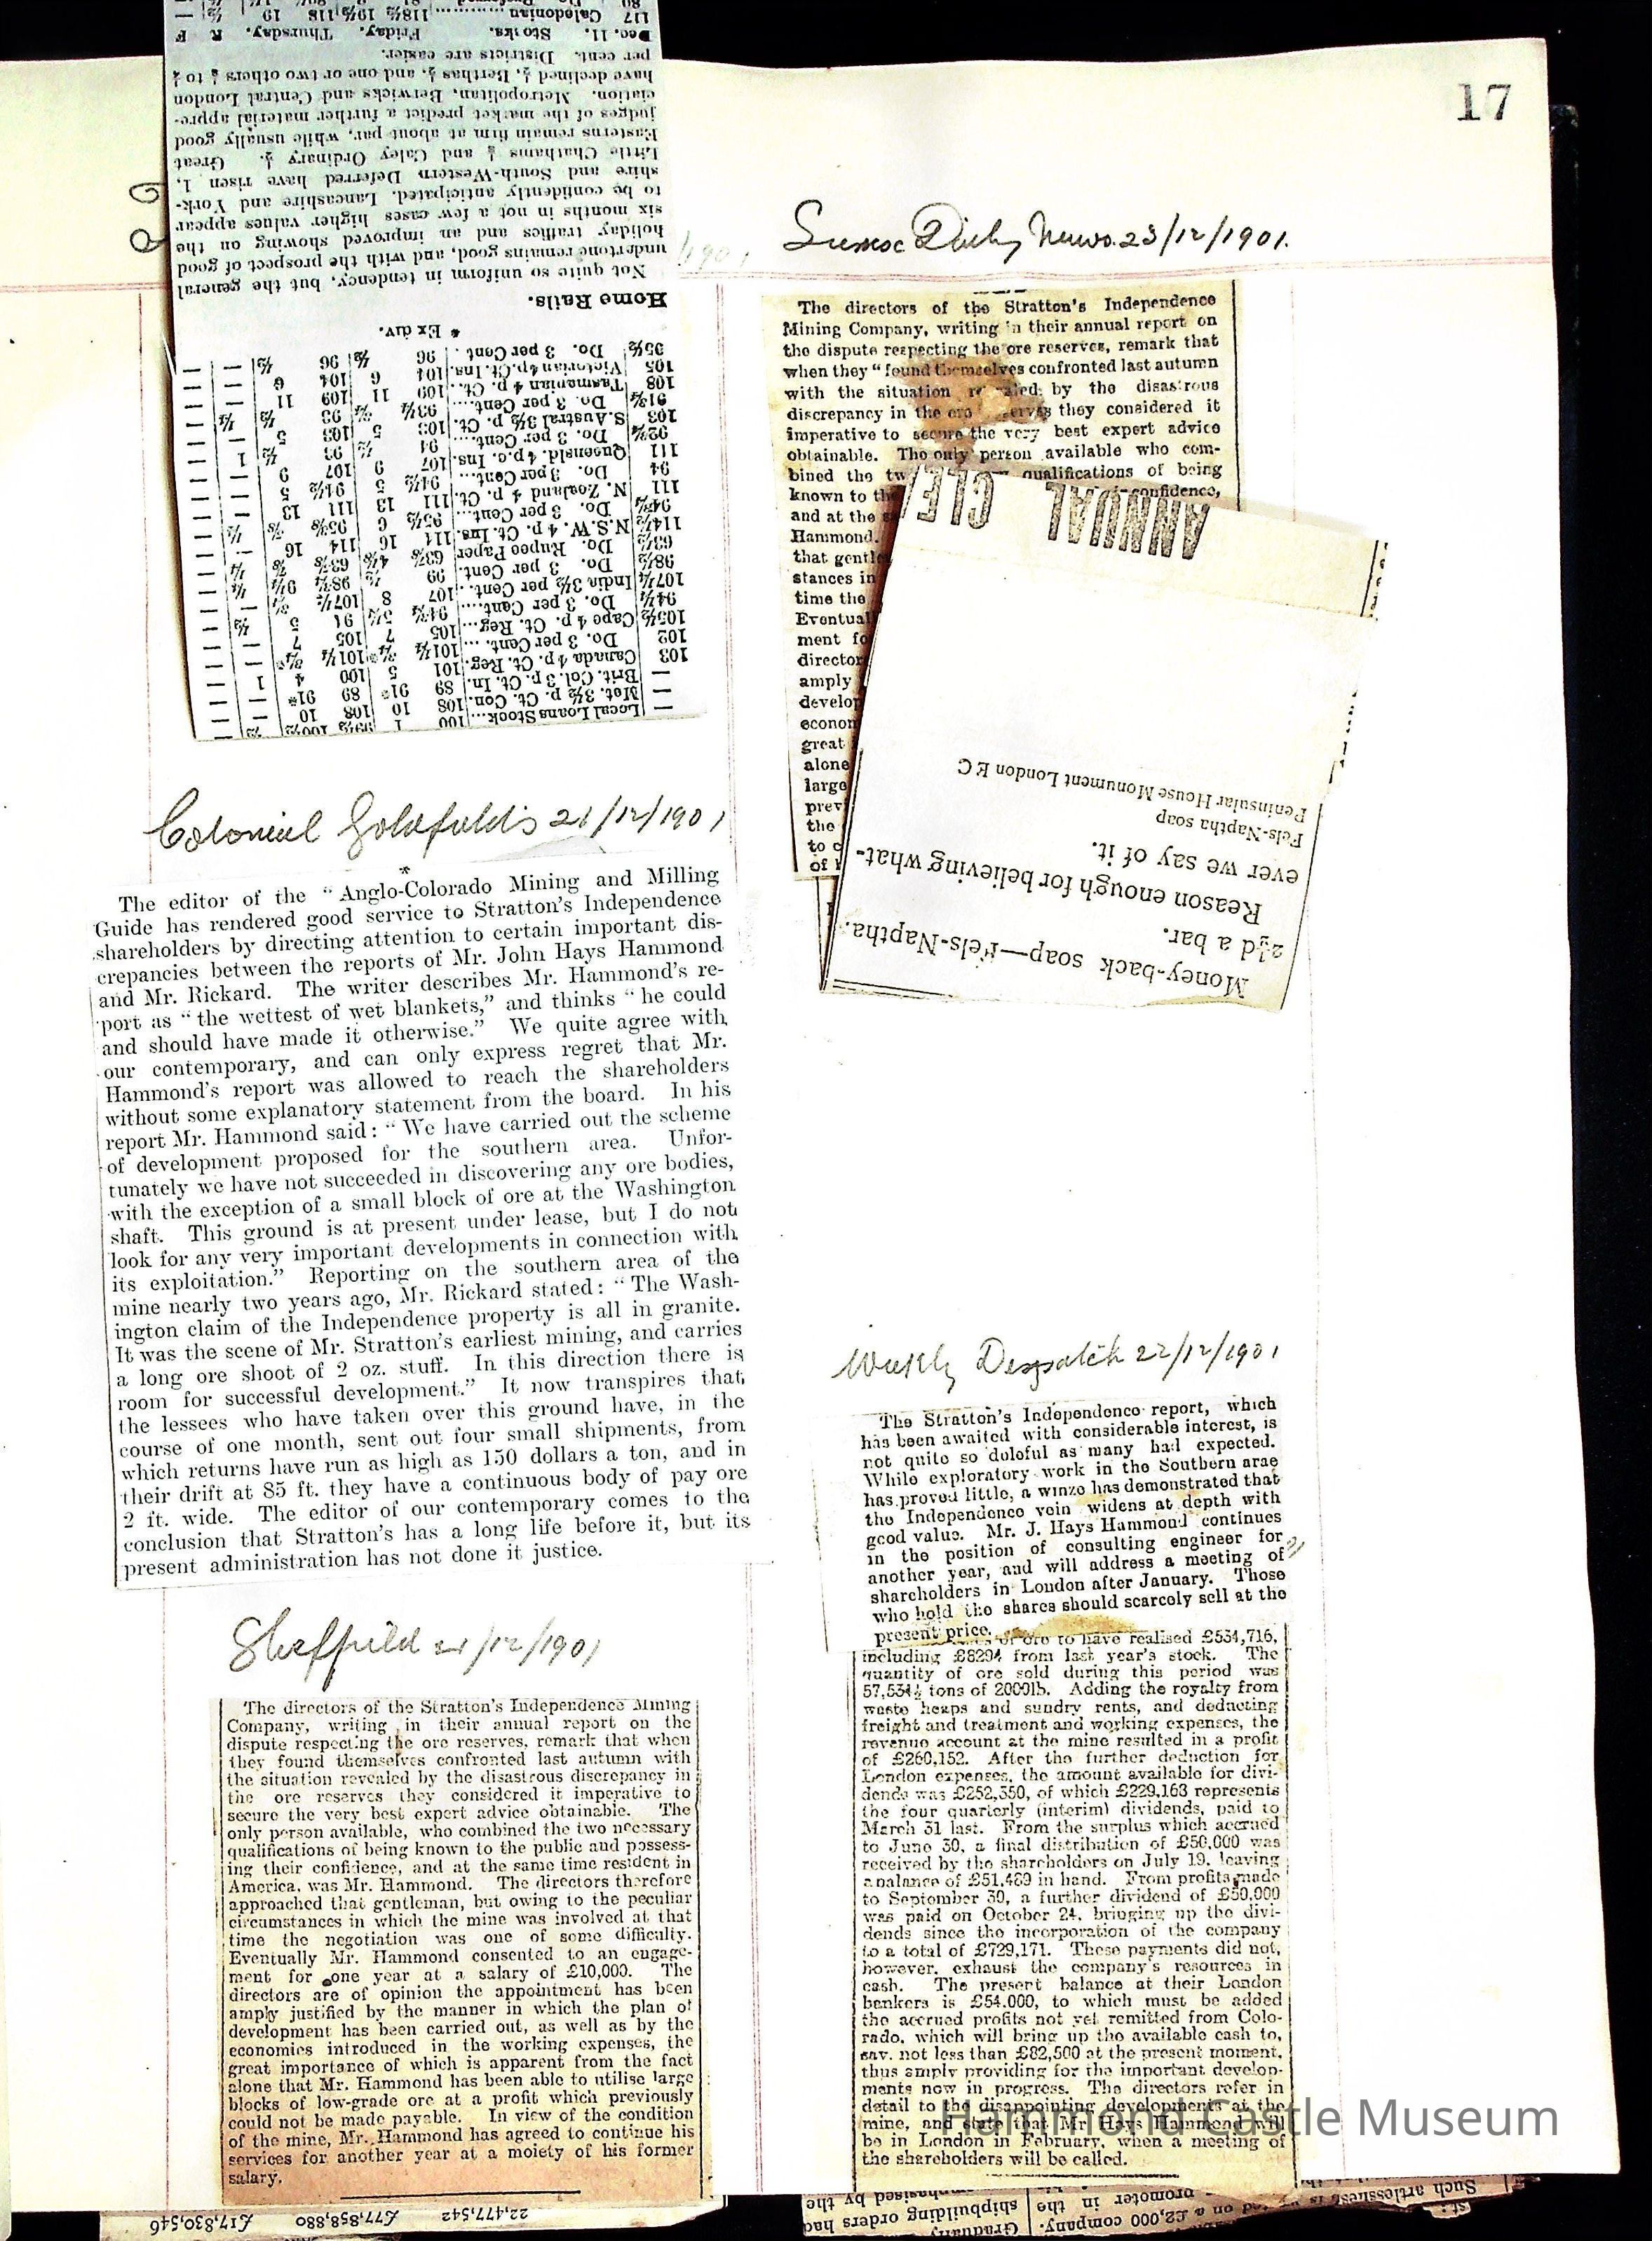 17
Sussex Daily News. 23/12/1901.
The directors of the Stratton's Independence
Mining Company, writing in their annual report on
the dispute respecting the ore reserves, remark that
when they "found themselves confronted last autumn
with the situation by the disastrous
discrepancy in the they considered it
imperative to secure the very best expert advice
obtainable. The only person available who com-
bined the qualifications of being
known to confidence,
and at the
Hammond.
that
stances in
time the
ment
amply
great
alone
large
the
to
of
ANNUAL
Money-back soap—Fels-Naptha.
2½d a bar.
Reason enough for believing what-
ever we say of it.
Fels-Naptha soap
Peninsular House Monument London E C
— Local Loans Stock... 100 1
— Met. 3½ p. Ct. Con. 108 10 108 10 — —
— Brit. Col. 3 p. Ct. In. 89 91* 89 91* — —
103 Canada 4 p. Ct. Reg. 101 5 100 4 1 —
102 Do. 3 per Cent. ... 101¼ ¾* 101¼ ¾* — —
105½ Cape 4 p. Ct. Reg. ... 105 7 105 7 — —
94¼ Do. 3 per Cent.
107¼ India 3½ per Cent.
98½ Do. 3 per Cent.
63½ Do. Rupee Paper
114½ N.S.W. 4 p. Ct. Ins. 114 16 114 16 — —
94¾ Do. 3 per Cent.
111 N. Zealand 4 p. Ct. 111 13 111 13 — —
94 Do. 3 per Cent.
111 Queensld. 4 p.c. Ins. 107 9 107 9 — —
92¾ Do. 3 per Cent.
103 S. Austral 3½ p. Ct. 103 5 103 5 — —
91¾ Do. 3 per Cent.
108 Tasmanian 4 p. Ct. 109 11 109 11 — —
105 Victorian 4 p. Ct. Ins. 104 6 104 6 — —
95½ Do. 3 per Cent. 96 ½ 96 ½ — —
* Ex div.
Home Rails.
Not quite so uniform in tendency, but the general
undertone remains good, and with the prospect of good
holiday traffics and an improved showing on the
six months in not a few cases higher values appear
to be confidently anticipated. Lancashire and York-
shire and South-Western Deferred have risen 1,
Little Chathams ¼ and Caley Ordinary ¼. Great
Easterns remain firm at about par, while usually good
judges of the market predict a further material appre-
ciation. Metropolitan, Berwicks and Central London
have declined ½, Berthas ¼, and one or two others ⅛ to ¼
per cent. Districts are easier.
Dec. 11. Stocks. Friday. Thursday. R F
117 Caledonian ......... 118½ 19½ 118 19 ½ —
Colonial Goldfields 21/12/1901
*
The editor of the "Anglo-Colorado Mining and Milling
Guide has rendered good service to Stratton's Independence
shareholders by directing attention to certain important dis-
crepancies between the reports of Mr. John Hays Hammond
and Mr. Rickard. The writer describes Mr. Hammond's re-
port as "the wettest of wet blankets," and thinks "he could
and should have made it otherwise." We quite agree with
our contemporary, and can only express regret that Mr.
Hammond's report was allowed to reach the shareholders
without some explanatory statement from the board. In his
report Mr. Hammond said: "We have carried out the scheme
of development proposed for the southern area. Unfor-
tunately we have not succeeded in discovering any ore bodies,
with the exception of a small block of ore at the Washington
shaft. This ground is at present under lease, but I do not
look for any very important developments in connection with
its exploitation." Reporting on the southern area of the
mine nearly two years ago, Mr. Rickard stated: "The Wash-
ington claim of the Independence property is all in granite.
It was the scene of Mr. Stratton's earliest mining, and carries
a long ore shoot of 2 oz. stuff. In this direction there is
room for successful development." It now transpires that
the lessees who have taken over this ground have, in the
course of one month, sent out four small shipments, from
which returns have run as high as 150 dollars a ton, and in
their drift at 85 ft. they have a continuous body of pay ore
2 ft. wide. The editor of our contemporary comes to the
conclusion that Stratton's has a long life before it, but its
present administration has not done it justice.
Sheffield 21/12/1901
The directors of the Stratton's Independence Mining
Company, writing in their annual report on the
dispute respecting the ore reserves, remark that when
they found themselves confronted last autumn with
the situation revealed by the disastrous discrepancy in
the ore reserves they considered it imperative to
secure the very best expert advice obtainable. The
only person available, who combined the two necessary
qualifications of being known to the public and possess-
ing their confidence, and at the same time resident in
America, was Mr. Hammond. The directors therefore
approached that gentleman, but owing to the peculiar
circumstances in which the mine was involved at that
time the negotiation was one of some difficulty.
Eventually Mr. Hammond consented to an engage-
ment for one year at a salary of £10,000. The
directors are of opinion the appointment has been
amply justified by the manner in which the plan of
development has been carried out, as well as by the
economies introduced in the working expenses, the
great importance of which is apparent from the fact
alone that Mr. Hammond has been able to utilise large
blocks of low-grade ore at a profit which previously
could not be made payable. In view of the condition
of the mine, Mr. Hammond has agreed to continue his
services for another year at a moiety of his former
salary.
22,477,542 £77,858,880 £17,830,546
Weekly Despatch 22/12/1901
The Stratton's Independence report, which
has been awaited with considerable interest, is
not quite so doleful as many had expected.
While exploratory work in the Southern arae
has proved little, a winze has demonstrated that
the Independence vein widens at depth with
good value. Mr. J. Hays Hammond continues
in the position of consulting engineer for
another year, and will address a meeting of
shareholders in London after January. Those
who hold the shares should scarcely sell at the
present price.
of ore to have realised £534,716,
including £8294 from last year's stock. The
quantity of ore sold during this period was
57,534½ tons of 2000lb. Adding the royalty from
waste heaps and sundry rents, and deducting
freight and treatment and working expenses, the
revenue account at the mine resulted in a profit
of £260,152. After the further deduction for
London expenses, the amount available for divi-
dends was £252,350, of which £229,163 represents
the four quarterly (interim) dividends, paid to
March 31 last. From the surplus which accrued
to June 30, a final distribution of £50,000 was
received by the shareholders on July 19, leaving
a balance of £51,469 in hand. From profits made
to September 30, a further dividend of £50,000
was paid on October 24, bringing up the divi-
dends since the incorporation of the company
to a total of £729,171. These payments did not,
however, exhaust the company's resources in
cash. The present balance at their London
bankers is £54,000, to which must be added
the accrued profits not yet remitted from Colo-
rado, which will bring up the available cash to,
say, not less than £82,500 at the present moment,
thus amply providing for the important develop-
ments now in progress. The directors refer in
detail to the disappointing development at the
mine, and state that Mr. Hays Hammond will
be in London in February, when a meeting of
the shareholders will be called.
Hammond Castle Museum
Such artlessness is
promoter in the
on a £2,000 company.
Gradually
shipbuilding orders had
emphasised by the